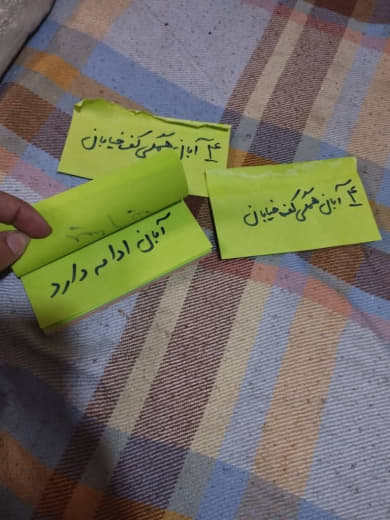 ۴ آبان همگی کف خیابان
۴ آبان همگی کف خیابان
آبان ادامه دارد